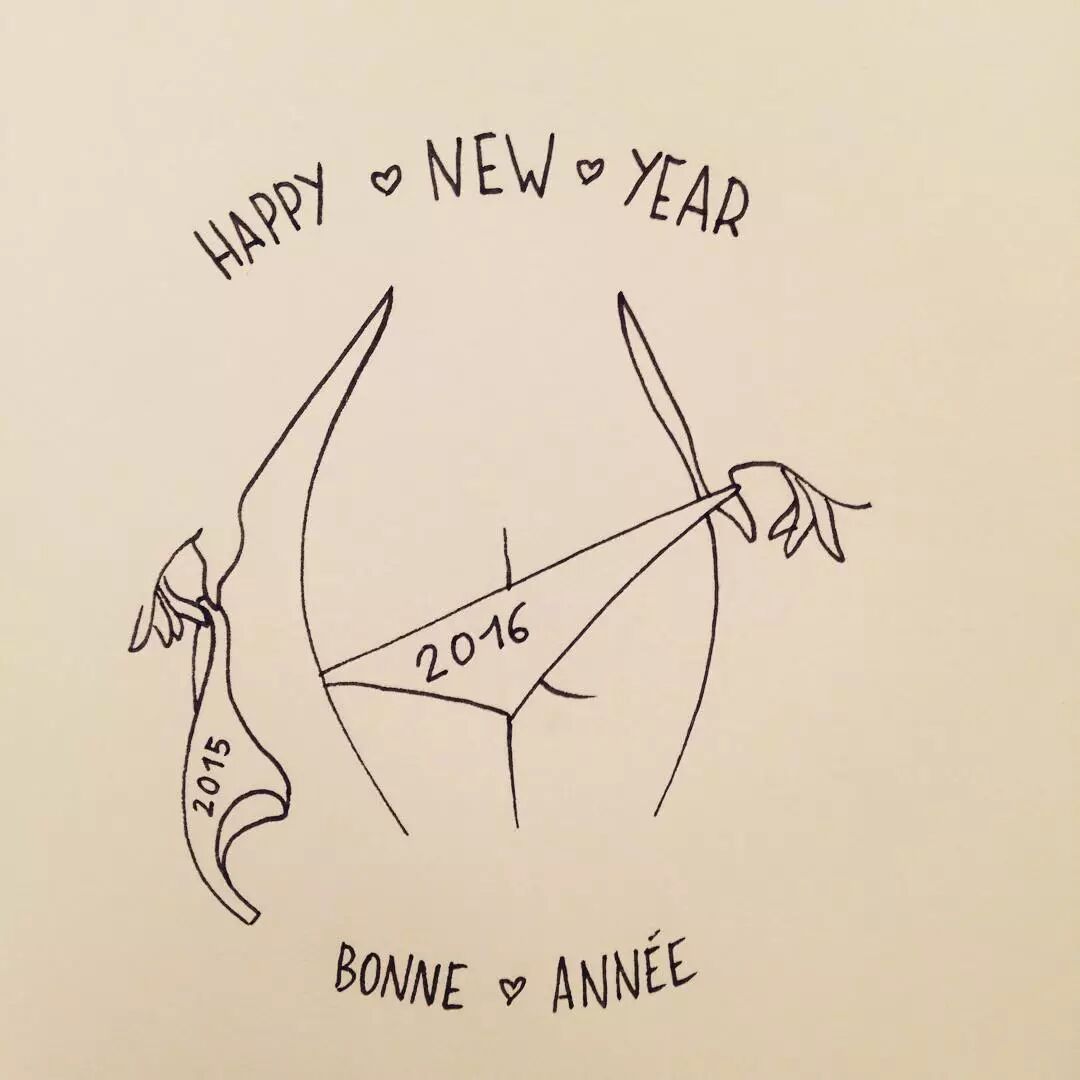 HAPPY ♡ NEW ♡ YEAR
2016
2015
BONNE ♡ ANNÉE